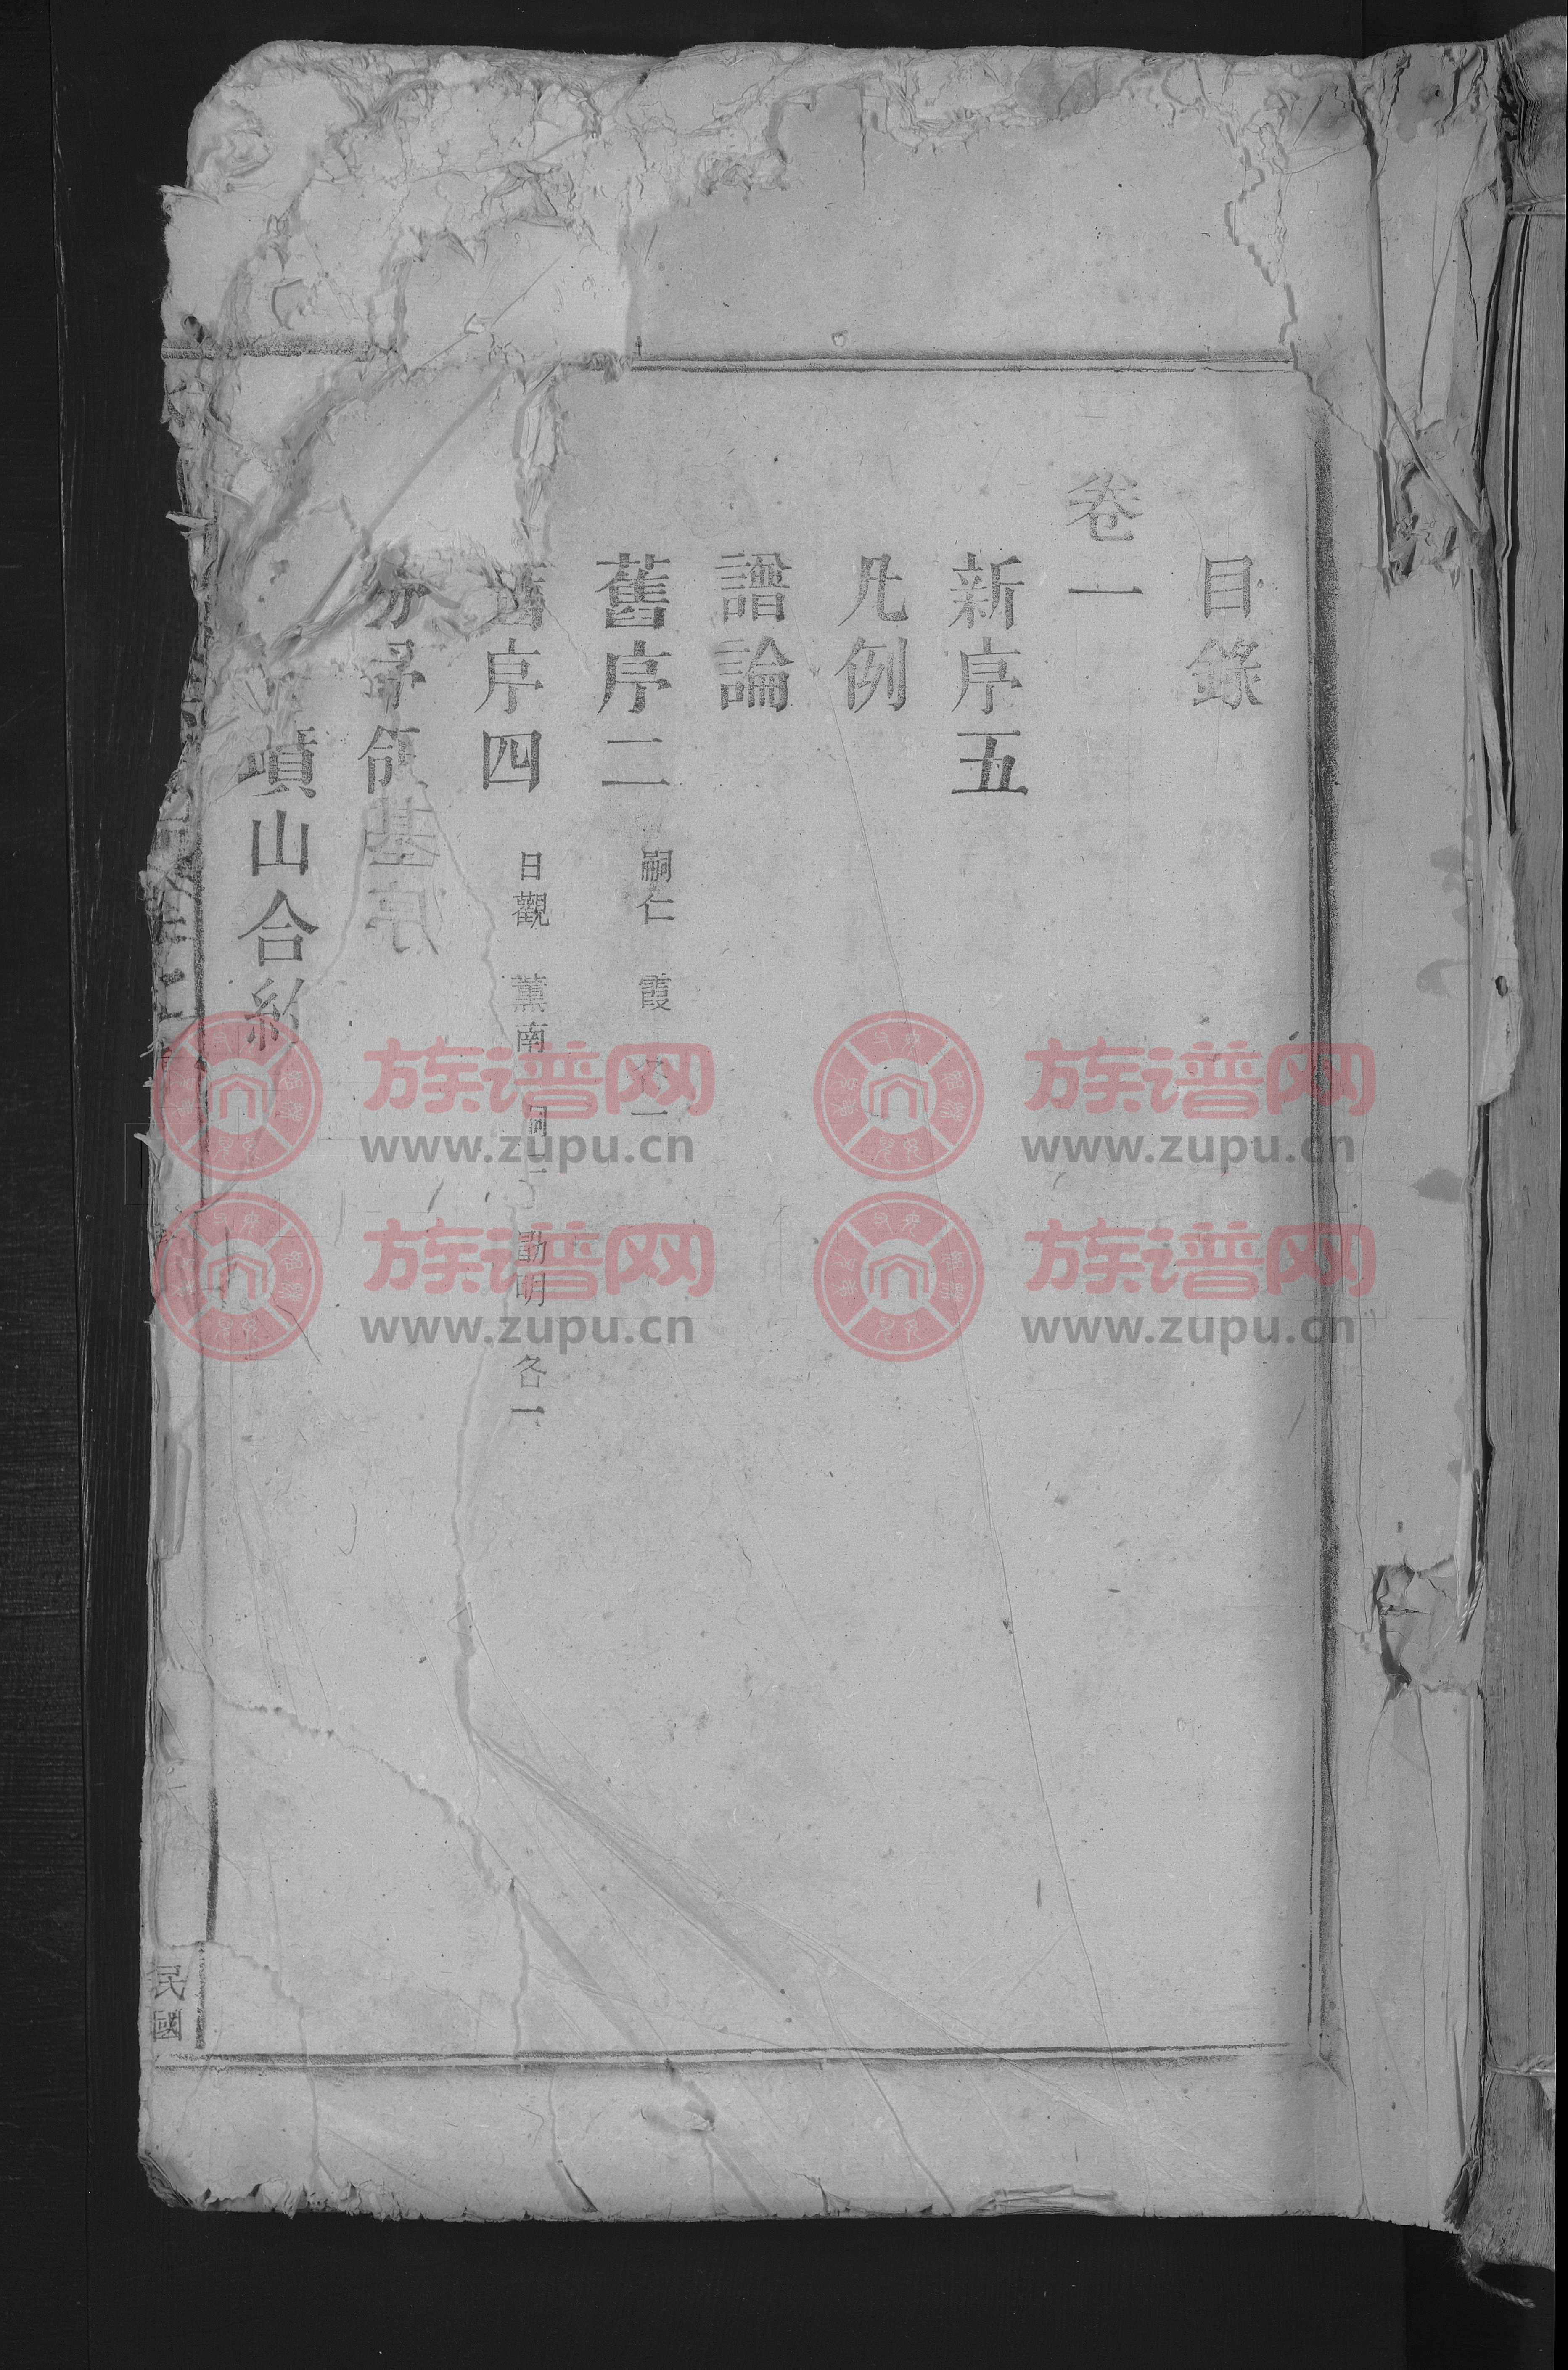 目錄
卷一
新序五
凡例
譜論
舊序二 嗣仁 霞 各一
舊序四 日觀 薰南 嗣仁 勛明 各一
墓
山合約
民國
族谱网
www.zupu.cn
族谱网
www.zupu.cn
族谱网
www.zupu.cn
族谱网
www.zupu.cn